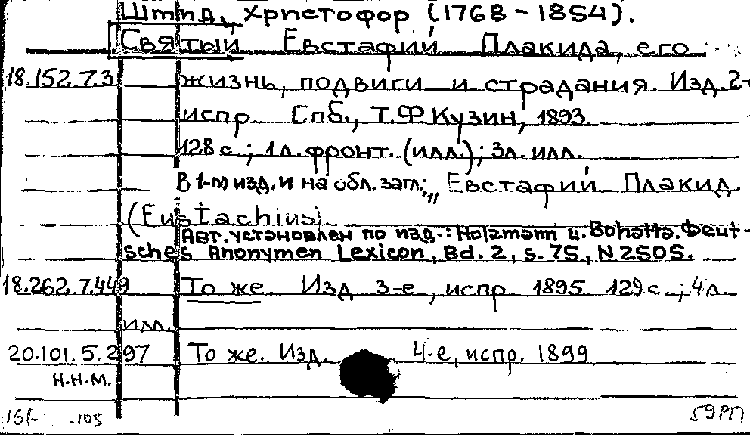 Шмид, Христофор (1768-1854).
Святый Евстафий Плакида, его
18.152.7.3 жизнь, подвиги и страдания. Изд. 2-
испр. Спб., Т.Ф Кузин, 1893
128 с.; 1 л. фронт. (илл.); 3 л. илл.
В 1-м изд. и на обл. загл.: „Евстафий Плакид.
(Eustachius).
Авт. установлен по изд.: Holzmann u. Bohatta. Deut-
sches Anonymen Lexicon, Bd. 2, S. 75, N 2505.
18.262.7.449 То же. Изд 3-е, испр 1895 129 с.; 4 л.
илл.
20.101.5.297 То же. Изд. 4-е, испр. 1899
Н.-Н.М.
59РП